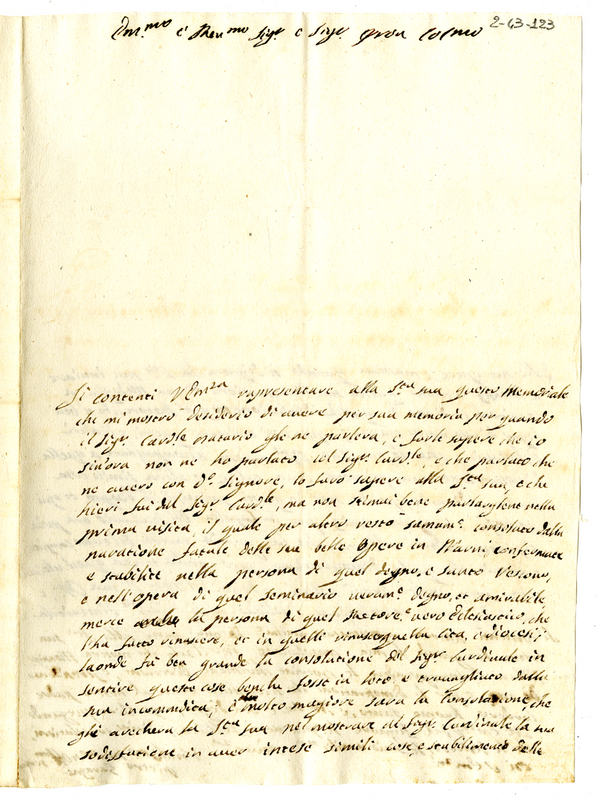 2-43-123
Em.mo e Reu.mo Sig.r e Sig.r Pron Colmo
Si contenti V Em.za rapresentare alla S.tà sua questo Memoriale
che mi mostrò desiderio di avere per sua memoria per quando
il Sig.r Card.le oratario gle ne parlerà, e farle sapere che io
sin'ora non ne ho parlato col Sig.r Card.le e che parlato che
ne averò con d.o Signore, lo farò sapere alla S.tà sua, e che
hieri fui dal Sig.r Card.le, ma non stimai bene parlarglene nella
prima visita, il quale per altro restò consolato dalla
naratione fatale delle sue belle Opere in Narni, confermate
e stabilite nella persona di quel degno, e santo Vescovo,
e nell'opera di quel seminario veram.e degno, et amirabile,
mercè la persona di quel Rettore vero Eclesiastico, che
l'ha fatto rinascere, et in quelle quella cità, e diocesi;
laonde fù ben grande la consolatione del Sig.r Cardinale in
sentire queste cose benche fosse in letto, e dalla
sua incommodità; e molto magiore sarà la consolatione, che
gli arecherà la S.tà sua nel mostrare al Sig.r Cardinale la sua
sodisfatione in aver intese simili cose, e stabilimento delle